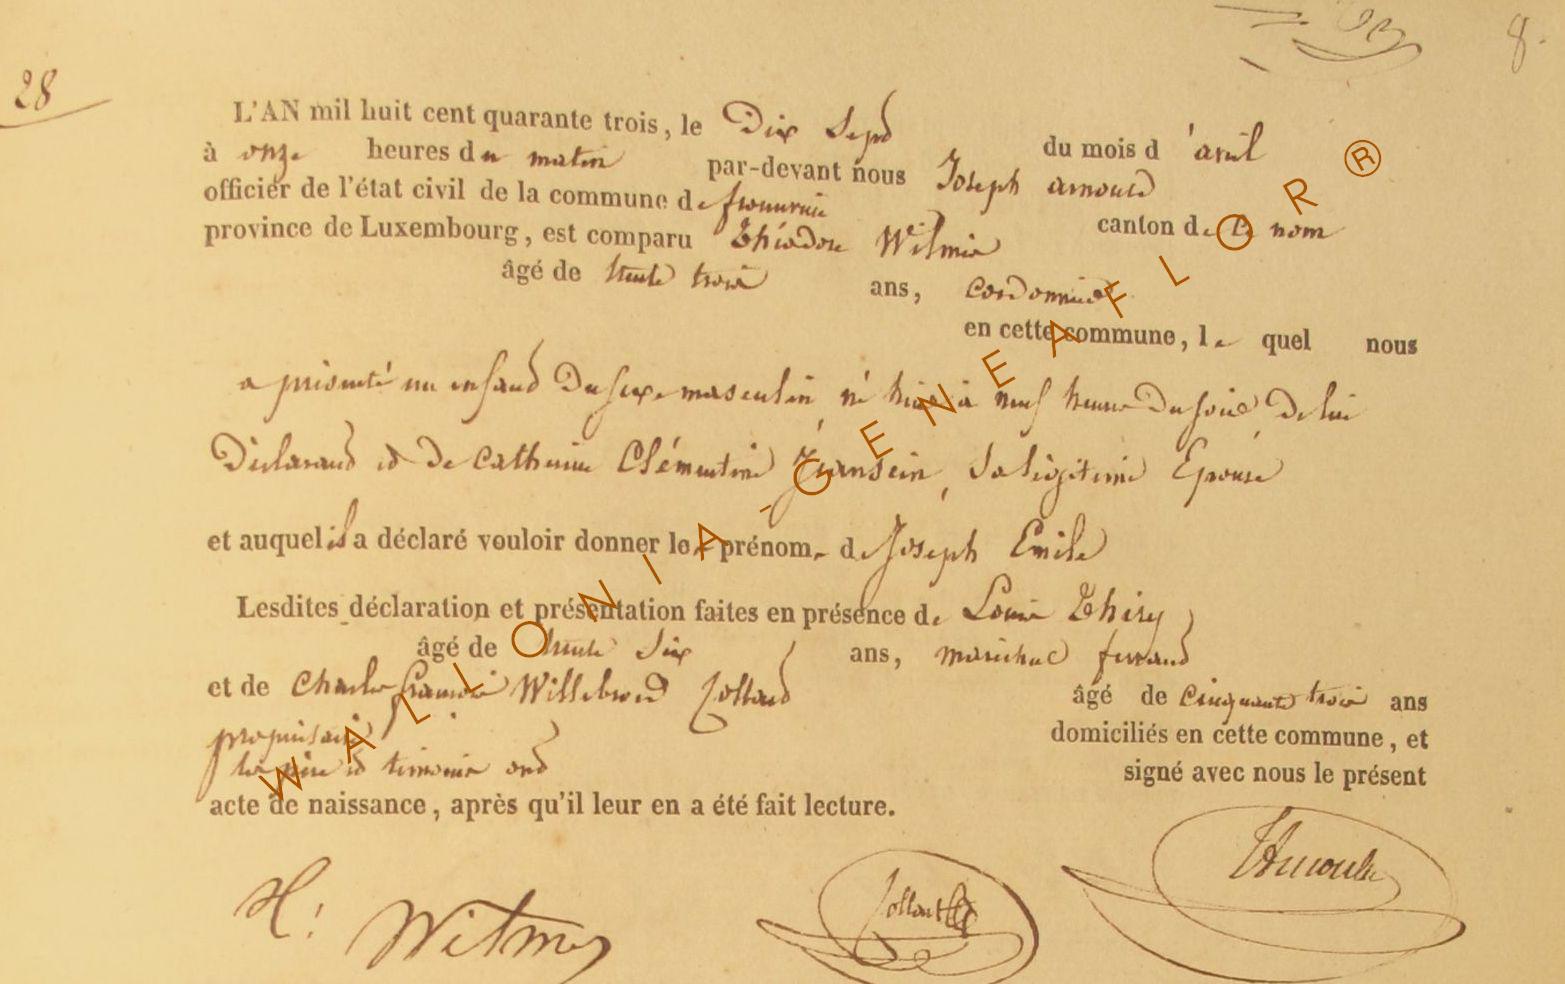 28
8.
L'AN mil huit cent quarante trois, le Dix Sept du mois d'avril
à onze heures du matin par-devant nous Joseph arnould
officier de l'état civil de la commune de canton de nom
province de Luxembourg, est comparu théodore Wilmes
âgé de trente trois ans, cordonnier
en cette commune, le quel nous
a présenté un enfant Du sexe masculin, né hier à neuf heures Du soir, De lui
Déclarant et De Catherine Clémentine Jransein, Sa légitime Epouse
et auquel il a déclaré vouloir donner les prénoms de Joseph Emile
Lesdites déclaration et présentation faites en présence de Louis Thiry
âgé de trente Six ans, maréchal ferrant
et de Charles françois Willebrord Collard âgé de cinquante trois ans
propriétaire domiciliés en cette commune, et
les père et témoins ont signé avec nous le présent
acte de naissance, après qu'il leur en a été fait lecture.
Collard
WALLONIA-GENEAFLOR®